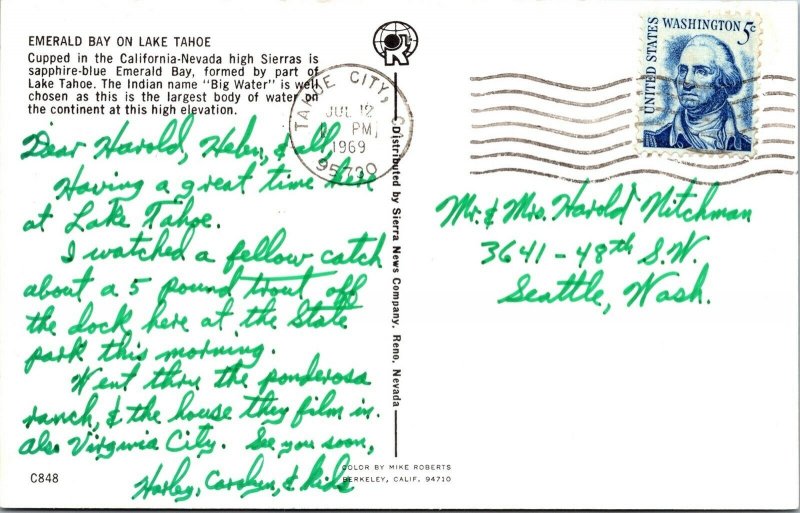 EMERALD BAY ON LAKE TAHOE
Cupped in the California-Nevada high Sierras is
sapphire-blue Emerald Bay, formed by part of
Lake Tahoe. The Indian name "Big Water" is well
chosen as this is the largest body of water on
the continent at this high elevation.
UNITED STATES
WASHINGTON 5c
TAHOE CITY, C
JUL 12
PM
1969
95730
Dear Harold, Helen, & all,
Having a great time here
at Lake Tahoe.
I watched a fellow catch
about a 5 pound trout off
the dock here at the State
park this morning.
Went thru the ponderosa
ranch, & the house they film in.
also Virginia City. See you soon,
Harley, Carolyn, & kids
Distributed by Sierra News Company, Reno, Nevada
Mr. & Mrs. Harold Nitchman
3641-48th S.W.
Seattle, Wash.
C848
COLOR BY MIKE ROBERTS
BERKELEY, CALIF. 94710